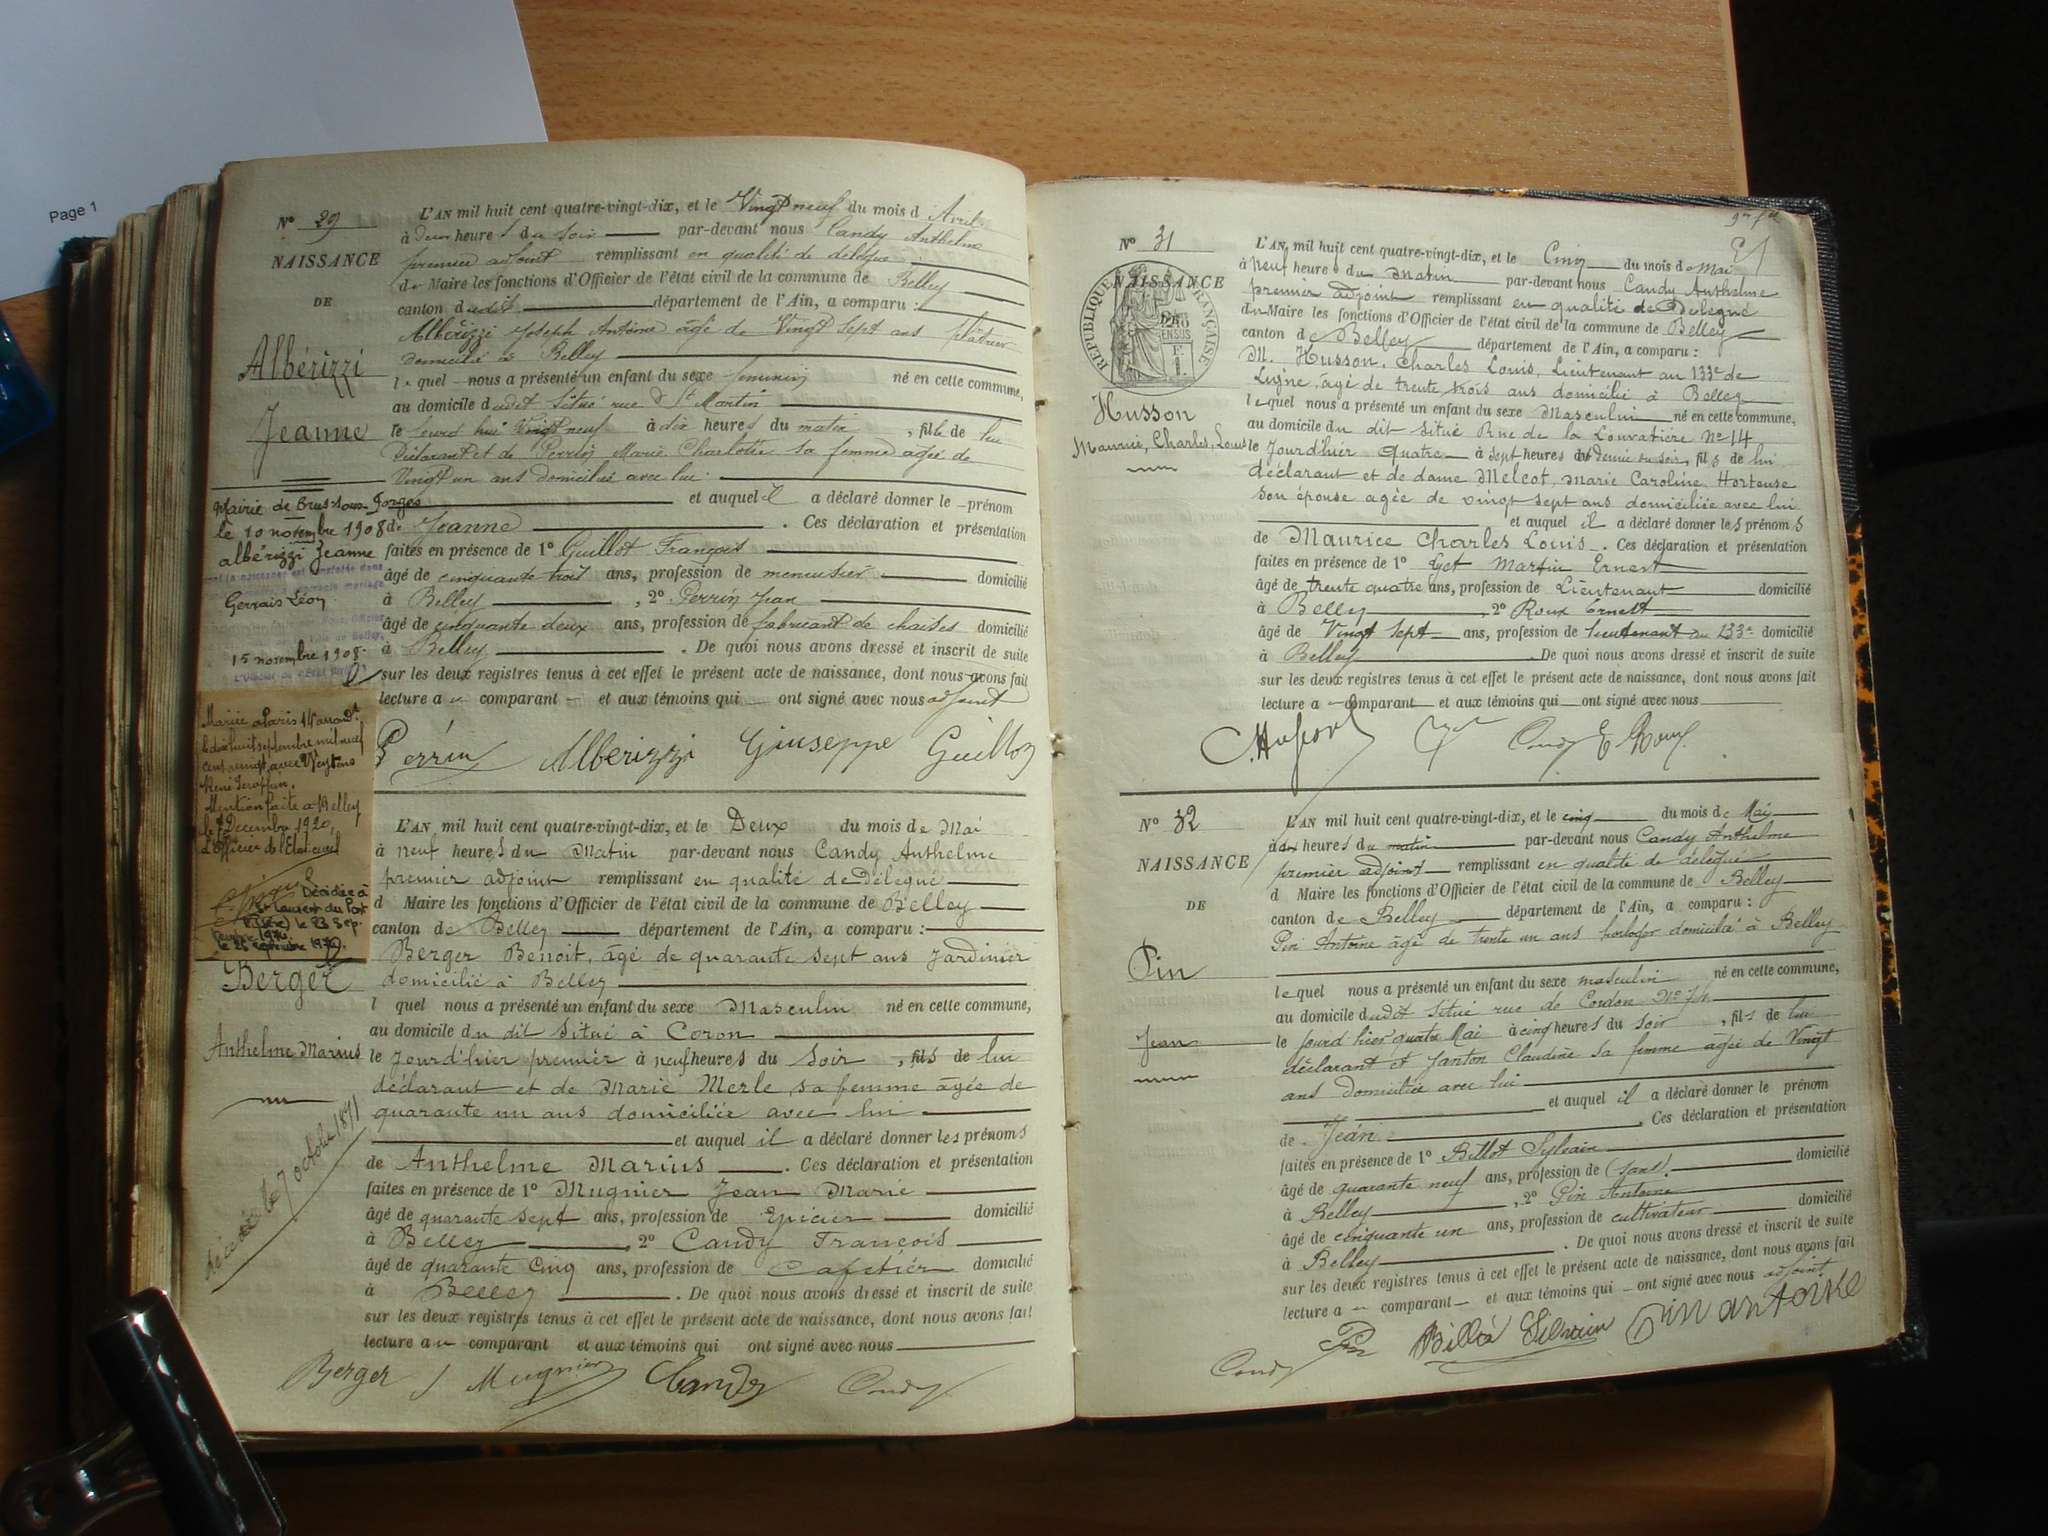 Page 1
Nº 29
NAISSANCE
DE
Albérizzi
Jeanne
L'AN mil huit cent quatre-vingt-dix, et le Vingt neuf du mois d Avril
à deux heures du soir par-devant nous Candy Anthelme
premier adjoint remplissant en qualité de délégué
de Maire les fonctions d'Officier de l'état civil de la commune de Belley
canton dudit département de l'Ain, a comparu :
Albérizzi Joseph Antoine âgé de Vingt sept ans plâtrier
domicilié à Belley
lequel nous a présenté un enfant du sexe féminin né en cette commune,
au domicile dudit situé rue St Martin
le jourd'hui Vingt neuf à dix heures du matin, fille de lui
Déclarant et de Perrin Marie Charlotte sa femme agée de
Vingt un ans domiciliés avec lui
et auquel il a déclaré donner le prénom
de Jeanne . Ces déclaration et présentation
faites en présence de 1º Guillot François
âgé de cinquante trois ans, profession de menuisier domicilié
à Belley , 2º Perrin Jean
âgé de cinquante deux ans, profession de fabricant de chaises domicilié
à Belley . De quoi nous avons dressé et inscrit de suite
sur les deux registres tenus à cet effet le présent acte de naissance, dont nous avons fait
lecture au comparant et aux témoins qui ont signé avec nous adjoint
Perrin Alberizzi Giuseppe Guillot
Mairie de Bruis-sous-Forges
le 10 novembre 1908
albérizzi Jeanne
Gervais Léon
15 novembre 1908
Mariée à Paris 14e arrondt
le dix huit septembre mil neuf
cent vingt, avec
René
Mention faite à Belley
le 7 Décembre 1920,
L'Officier de l'Etat civil
Décédée à
St Laurent du Pont
(Isère) le 23 Sep-
tembre 1976
le 24 septembre 1976.
Berger
Anthelme Marius
décédé le 7 octobre 1891
L'AN mil huit cent quatre-vingt-dix, et le Deux du mois de Mai
à neuf heures du Matin par-devant nous Candy Anthelme
premier adjoint remplissant en qualité de Délégué
d Maire les fonctions d'Officier de l'état civil de la commune de Belley
canton de Belley département de l'Ain, a comparu :
Berger Benoit, âgé de quarante sept ans Jardinier
domicilié à Belley
l quel nous a présenté un enfant du sexe Masculin né en cette commune,
au domicile du dit situé à Coron
le Jourd'hier premier à neuf heures du soir, fils de lui
déclarant et de Marie Merle sa femme âgée de
quarante un ans domiciliée avec lui
et auquel il a déclaré donner les prénoms
de Anthelme Marius . Ces déclaration et présentation
faites en présence de 1º Mugnier Jean Marie
âgé de quarante sept ans, profession de Epicier domicilié
à Belley , 2º Candy François
âgé de quarante cinq ans, profession de Cafetier domicilié
à Belley . De quoi nous avons dressé et inscrit de suite
sur les deux registres tenus à cet effet le présent acte de naissance, dont nous avons fait
lecture au comparant et aux témoins qui ont signé avec nous
Berger J Mugnier Candy Candy
Nº 31
NAISSANCE
REPUBLIQUE FRANÇAISE
Husson
Maurice, Charles, Louis
L'AN mil huit cent quatre-vingt-dix, et le Cinq du mois de Mai
à neuf heures du Matin par-devant nous Candy Anthelme
premier adjoint remplissant en qualité de Délégué
du Maire les fonctions d'Officier de l'état civil de la commune de Belley
canton de Belley département de l'Ain, a comparu :
M. Husson, Charles Louis, Lieutenant au 133e de
Ligne, âgé de trente trois ans domicilié à Belley
lequel nous a présenté un enfant du sexe Masculin né en cette commune,
au domicile du dit situé Rue de la Louvatière Nº 14
le Jourd'hier Quatre à sept heures et demie du soir, fils de lui
déclarant et de dame Melcot, Marie Caroline Hortense
son épouse agée de vingt sept ans domiciliée avec lui
et auquel il a déclaré donner les prénoms
de Maurice Charles Louis . Ces déclaration et présentation
faites en présence de 1º Martin Ernest
âgé de trente quatre ans, profession de Lieutenant domicilié
à Belley , 2º Roux Ernest
âgé de Vingt sept ans, profession de lieutenant au 133e domicilié
à Belley . De quoi nous avons dressé et inscrit de suite
sur les deux registres tenus à cet effet le présent acte de naissance, dont nous avons fait
lecture au comparant et aux témoins qui ont signé avec nous
C. Husson Candy E Roux
Nº 32
NAISSANCE
DE
Pin
Jean
L'AN mil huit cent quatre-vingt-dix, et le cinq du mois de Mai
à dix heures du matin par-devant nous Candy Anthelme
premier adjoint remplissant en qualité de délégué
d Maire les fonctions d'Officier de l'état civil de la commune de Belley
canton de Belley département de l'Ain, a comparu :
Pin Antoine âgé de trente un ans horloger domicilié à Belley
lequel nous a présenté un enfant du sexe masculin né en cette commune,
au domicile dudit situé rue de Cordon Nº
le jourd'hier quatre Mai à cinq heures du soir, fils de lui
déclarant et Janton Claudine sa femme âgée de Vingt
ans domiciliée avec lui
et auquel il a déclaré donner le prénom
de Jean . Ces déclaration et présentation
faites en présence de 1º Billot Sylvain
âgé de quarante neuf ans, profession de (sans) domicilié
à Belley , 2º Pin Antoine
âgé de cinquante un ans, profession de cultivateur domicilié
à Belley . De quoi nous avons dressé et inscrit de suite
sur les deux registres tenus à cet effet le présent acte de naissance, dont nous avons fait
lecture au comparant et aux témoins qui ont signé avec nous adjoint
Candy Pin Pin antoine